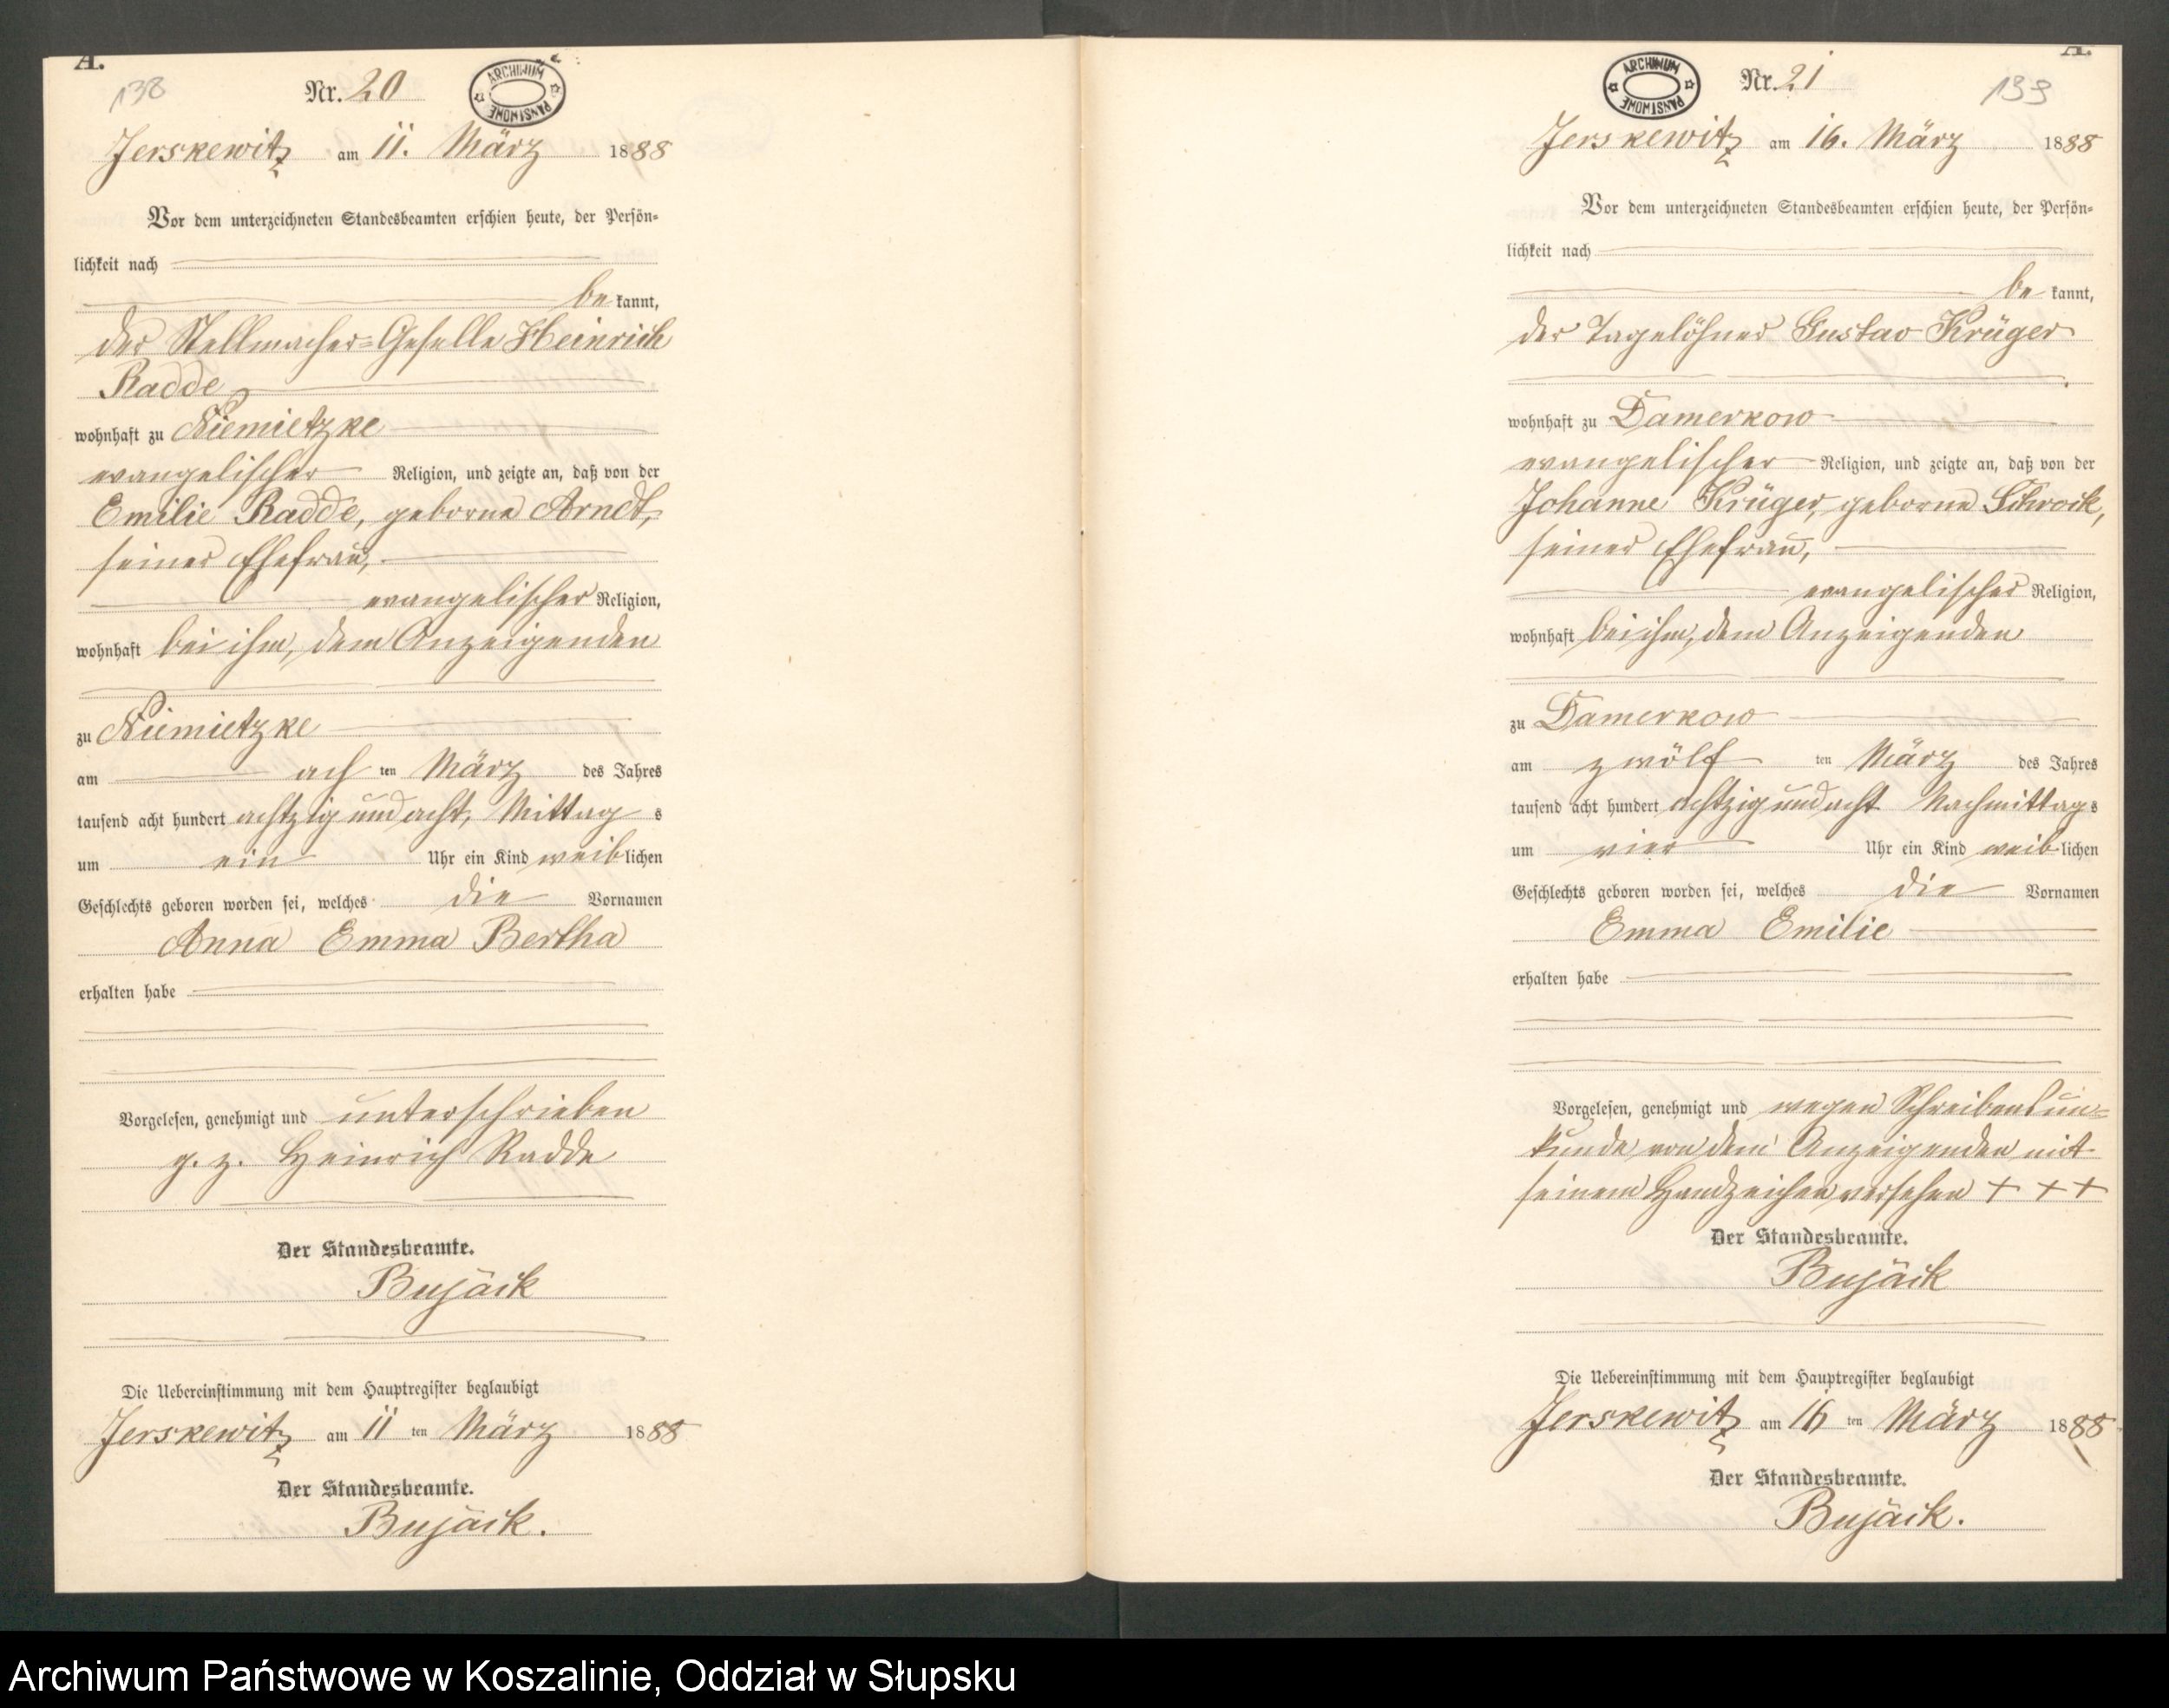 A.
138
Nr. 20
ARCHIWUM PAŃSTWOWE
Jerskewitz am 11. März 1888
Vor dem unterzeichneten Standesbeamten erschien heute, der Persön-
lichkeit nach
be kannt,
der Stellmacher-Geselle Heinrich
Radde
wohnhaft zu Niemietzke
evangelischer Religion, und zeigte an, daß von der
Emilie Radde, geborne Arndt,
seiner Ehefrau,
evangelischer Religion,
wohnhaft bei ihm, dem Anzeigenden
zu Niemietzke
am ach ten März des Jahres
tausend acht hundert achtzig und acht, Mittag s
um ein Uhr ein Kind weib lichen
Geschlechts geboren worden sei, welches die Vornamen
Anna Emma Bertha
erhalten habe
Vorgelesen, genehmigt und unterschrieben
g. z. Heinrich Radde
Der Standesbeamte.
Bujäck
Die Uebereinstimmung mit dem Hauptregister beglaubigt
Jerskewitz am 11 ten März 1888
Der Standesbeamte.
Bujäck.
A.
ARCHIWUM PAŃSTWOWE
Nr. 21
139
Jerskewitz am 16. März 1888
Vor dem unterzeichneten Standesbeamten erschien heute, der Persön-
lichkeit nach
be kannt,
der Tagelöhner Gustav Krüger
wohnhaft zu Damerkow
evangelischer Religion, und zeigte an, daß von der
Johanne Krüger, geborne Schrock,
seiner Ehefrau,
evangelischer Religion,
wohnhaft bei ihm, dem Anzeigenden
zu Damerkow
am zwölf ten März des Jahres
tausend acht hundert achtzig und acht Nachmittag s
um vier Uhr ein Kind weib lichen
Geschlechts geboren worden sei, welches die Vornamen
Emma Emilie
erhalten habe
Vorgelesen, genehmigt und wegen Schreibensun-
kunde von dem Anzeigenden mit
seinem Handzeichen versehen + + +
Der Standesbeamte.
Bujäck
Die Uebereinstimmung mit dem Hauptregister beglaubigt
Jerskewitz am 16 ten März 1888
Der Standesbeamte.
Bujäck.
Archiwum Państwowe w Koszalinie, Oddział w Słupsku